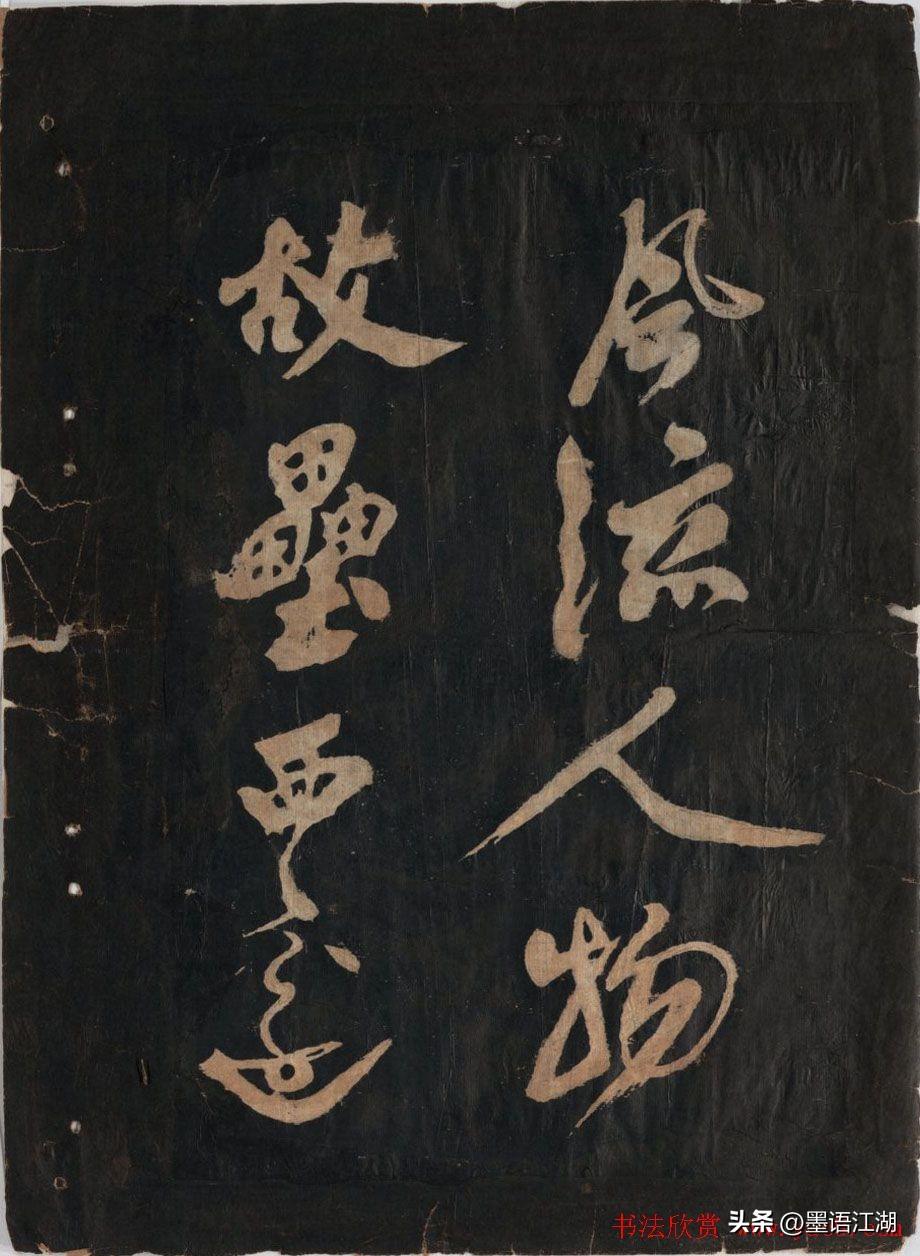 風流人物
故壘西邊
书法欣赏
头条 @墨语江湖